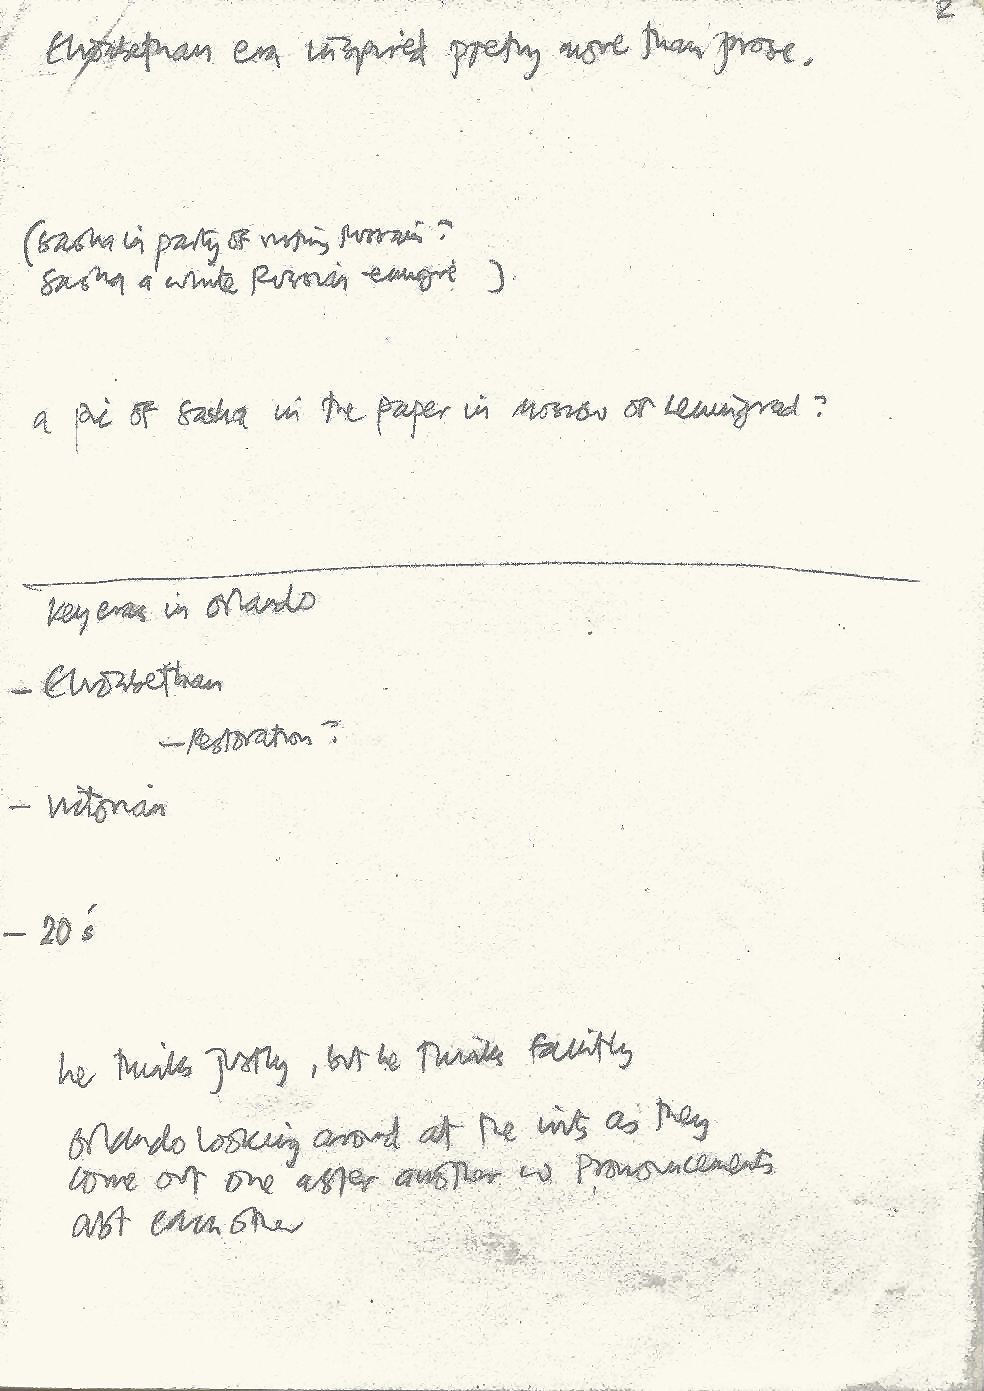 2
Elizabethan era inspired poetry more than prose.
(Sasha in party of visiting Russians?
Sasha a white Russian emigré )
a pic of Sasha in the paper in Moscow or Leningrad?
key eras in Orlando
- Elizabethan
- Restoration?
- Victorian
- 20's
he thinks justly, but he thinks faintly
Orlando looking around at the wits as they
come out one after another w pronouncements
abt each other